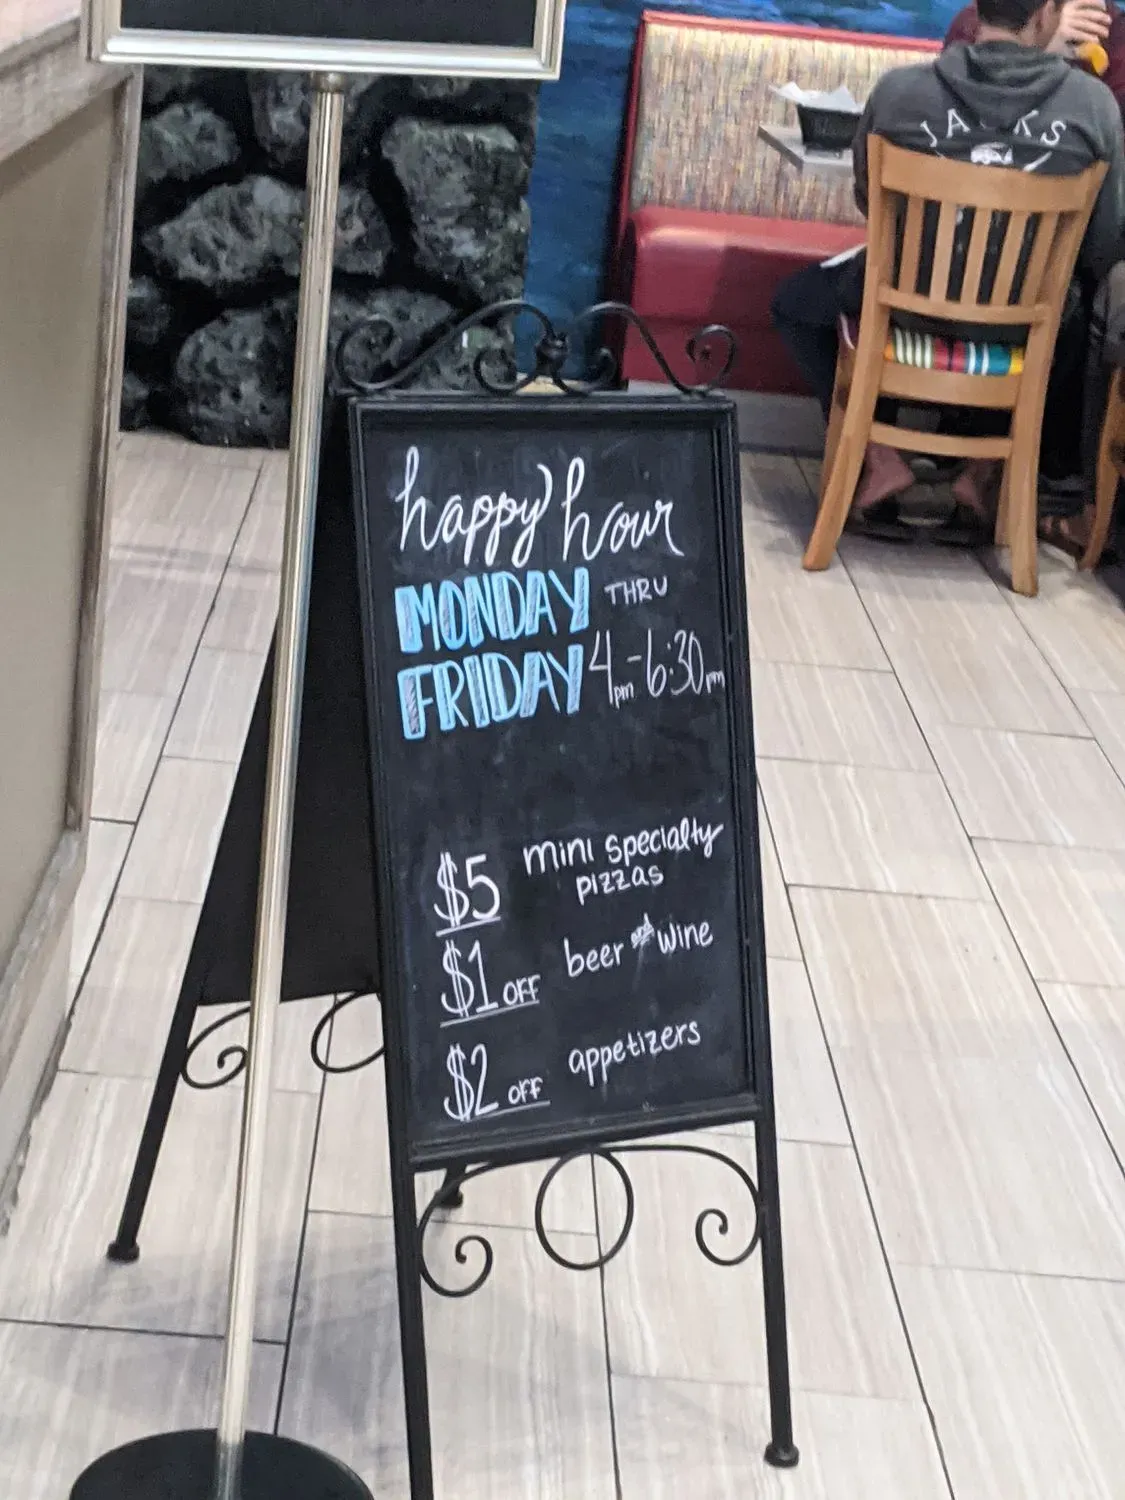 JACKS
happy hour
MONDAY THRU
FRIDAY 4pm-6:30pm
$5 mini specialty
pizzas
$1 OFF beer and wine
$2 OFF appetizers